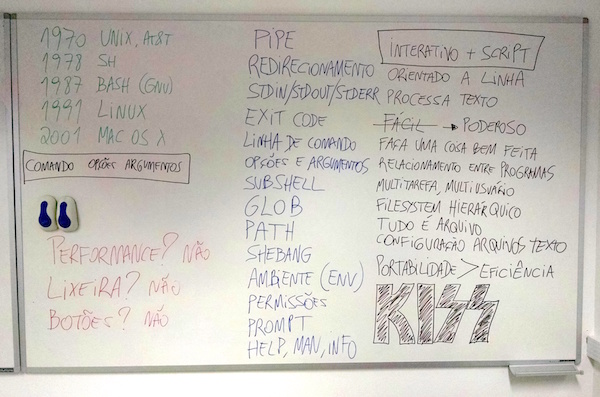 1970 UNIX, AT&T
1978 SH
1987 BASH (GNU)
1991 LINUX
2001 MAC OS X
COMANDO OPÇÕES ARGUMENTOS
PERFORMANCE? NÃO
LIXEIRA? NÃO
BOTÕES? NÃO
PIPE
REDIRECIONAMENTO
STDIN/STDOUT/STDERR
EXIT CODE
LINHA DE COMANDO
OPÇÕES E ARGUMENTOS
SUBSHELL
GLOB
PATH
SHEBANG
AMBIENTE (ENV)
PERMISSÕES
PROMPT
HELP, MAN, INFO
INTERATIVO + SCRIPT
ORIENTADO A LINHA
PROCESSA TEXTO
FÁCIL → PODEROSO
FAÇA UMA COSA BEM FEITA
RELACIONAMENTO ENTRE PROGRAMAS
MULTITAREFA, MULTIUSUÁRIO
FILESYSTEM HIERÁRQUICO
TUDO É ARQUIVO
CONFIGURAÇÃO ARQUIVOS TEXTO
PORTABILIDADE > EFICIÊNCIA
KISS